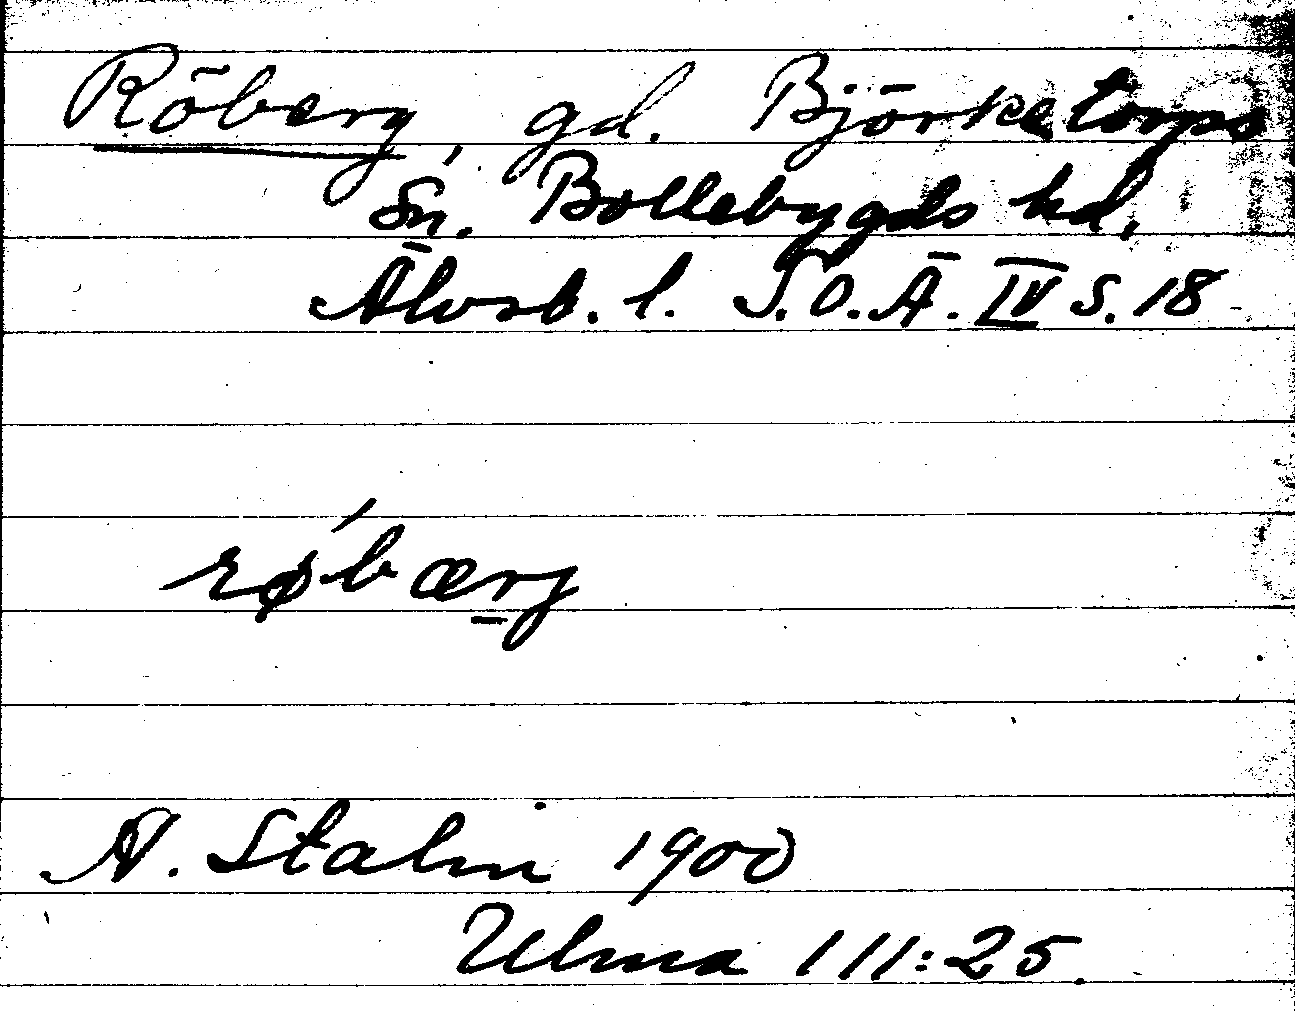 Röberg, gd. Björketorps
Sn. Bollebygds hd,
Älvsb. l. S.O.Ä. IV S. 18
rǿbærj
A. Stalin 1900
Ulma 111:25.